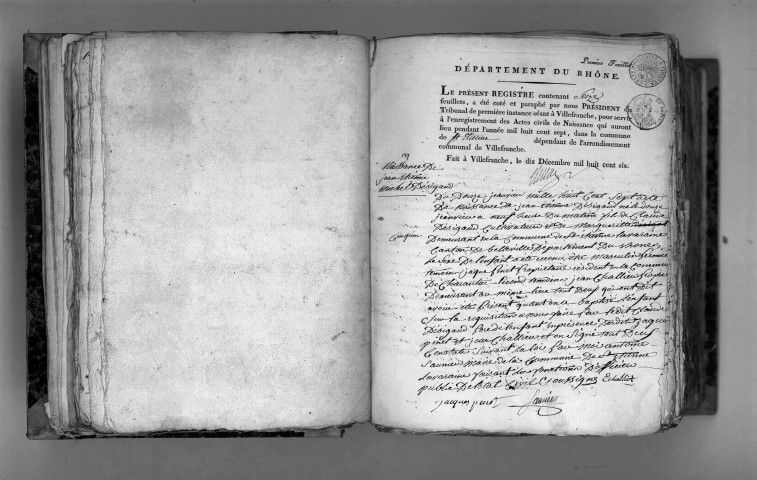 Premier Feuillet
DÉPARTEMENT DU RHÔNE.
LE PRÉSENT REGISTRE contenant
feuillets, a été coté et paraphé par nous PRÉSIDENT du
Tribunal de première instance séant à Villefranche, pour servir
à l'enregistrement des Actes civils de Naissance qui auront
lieu pendant l'année mil huit cent sept, dans la commune
de St Etienne dépendant de l'arrondissement
communal de Villefranche.
Fait à Villefranche, le dix Décembre mil huit cent six.
Naissance De
jean etienne
Désigaud
Du Douze janvier mille huit Cent Sept acte
De Naissance de jean etienne Désigaud né le douze
janvier a neuf heure du matin fil de Claude
Désigaud Cultivateur et De Marguerite
Demeurant en la Commune de St etienne lavaraine
Canton de belleville Département Du rhone
Le Sexe De l'enfant a été reconu etre masculin premie
temoin jaque pinet Propriétaire résident en la Commune
De Charantai Second temoin jean Challieu
Demeurant au même lieu tout Deux qui ont dit
avoir été présent quant on a baptisé l'enfant
Sur la requisition a nous faite par ledit Claude
Désigaud père de l'enfant en présence Dudit jaque
pinet et jean Challieu et on Signé tout Deux
Constaté Suivant la loi par moi antoine
Saunier maire de la Commune De St etienne
lavaraine faisant les fonctions D'officier
public De l'état Civil Soussigné Challieu
jacques pinet Saunier